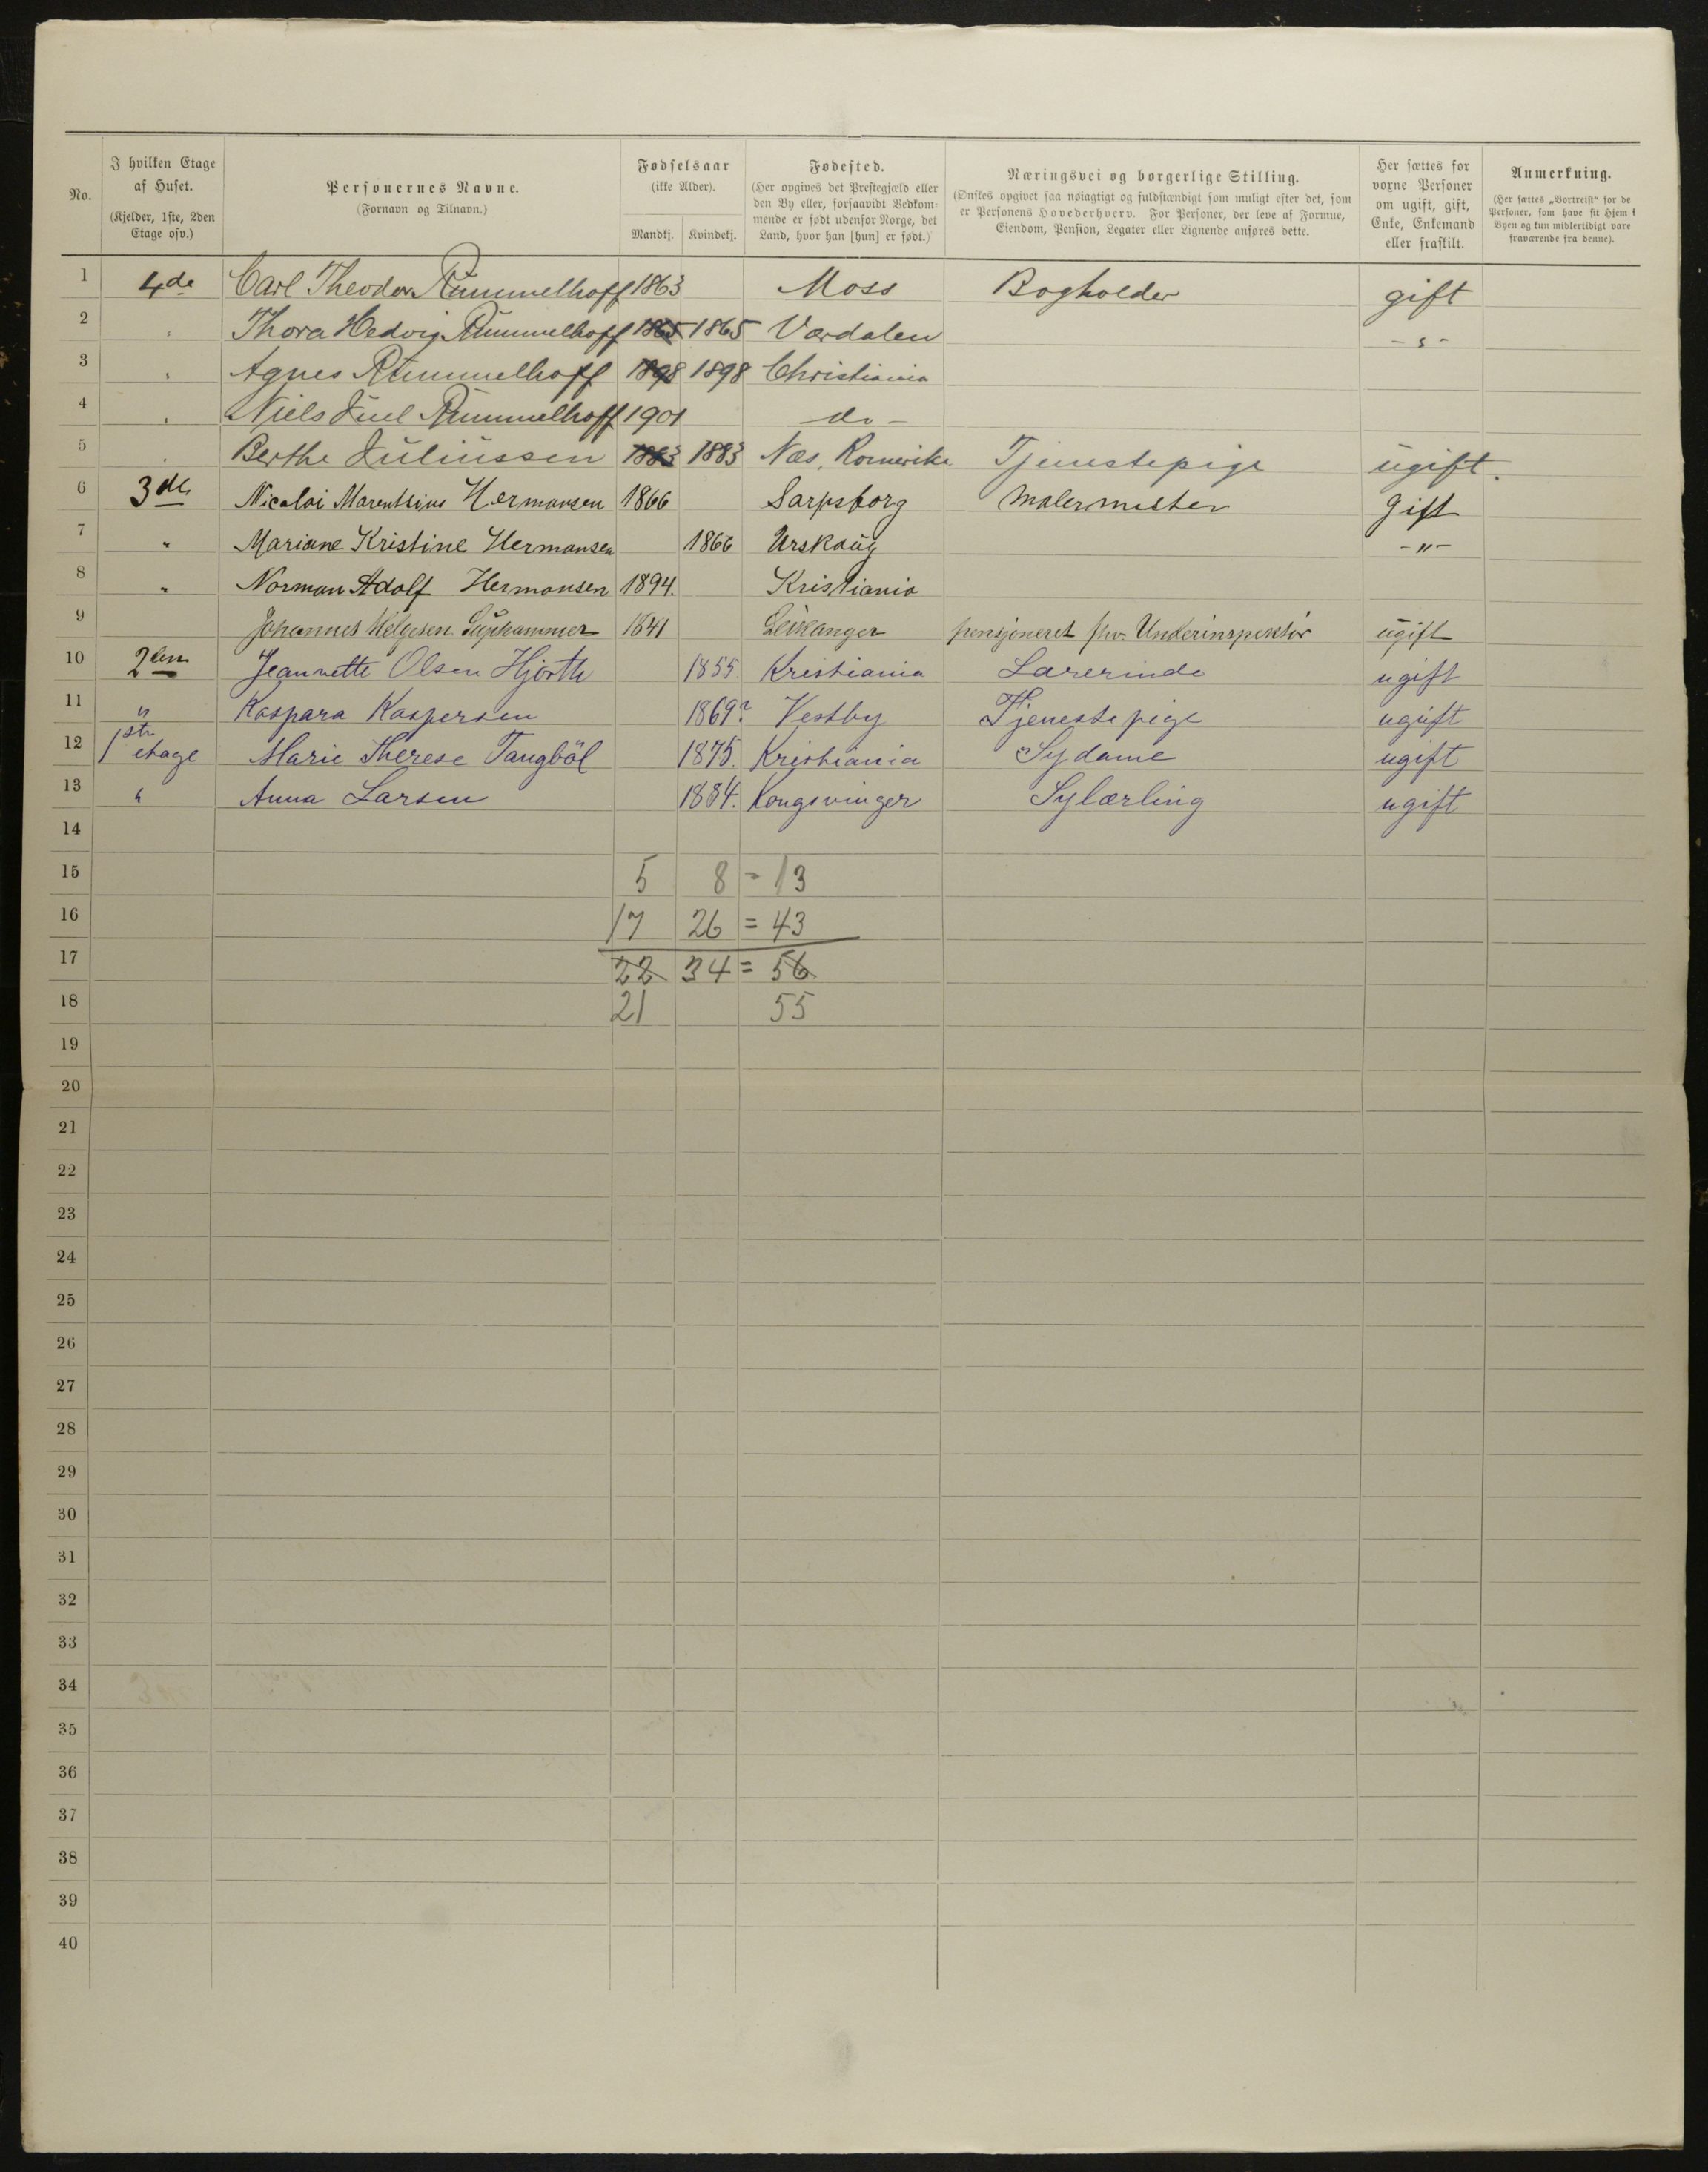 No.
I hvilken Etage af Huset.
(Kjelder, 1ste, 2den Etage osv.)
Personernes Navne.
(Fornavn og Tilnavn.)
Fødselsaar
(ikke Alder).
Mandkj. Kvindekj.
Fødested.
(Her opgives det Prestegjæld eller den By eller, forsaavidt Vedkommende er født udenfor Norge, det Land, hvor han [hun] er født.)
Næringsvei og borgerlige Stilling.
(Ønskes opgivet saa nøiagtigt og fuldstændigt som muligt efter det, som er Personens Hovederhverv. For Personer, der leve af Formue, Eiendom, Pension, Legater eller Lignende anføres dette.
Her sættes for voxne Personer om ugift, gift, Enke, Enkemand eller fraskilt.
Anmerkning.
(Her sættes „Bortreist“ for de Personer, som have sit Hjem i Byen og kun midlertidigt vare fraværende fra denne).
1 4de Carl Theodor Rummelhoff 1863 Moss Bogholder gift
2 " Thora Hedvig Rummelhoff 1865 1865 Værdalen - " -
3 " Agnes Rummelhoff 1898 1898 Christiania
4 " Niels Juel Rummelhoff 1901 do -
5 " Berthe Juliussen 1883 1883 Næs, Romerike Tjenestepige ugift.
6 3die Nicolai Marentsius Hermansen 1866 Sarpsborg Malermester Gift
7 " Mariane Kristine Hermansen 1866 Urskoug - " -
8 " Norman Adolf Hermansen 1894. Kristiania
9 Johannes Helgesen 1841 Leikanger pensjoneret fhv. Underinspektør ugift
10 2den Jeannette Olsen Hjorth 1855 Kristiania Lærerinde ugift
11 " Kaspara Kaspersen 1869? Vestby Tjenestepige ugift
12 1ste etage Marie Therese Tangböl 1875. Kristiania Sydame ugift
13 " Anna Larsen 1884. Kongsvinger Sylærling ugift
14
15 5 8 = 13
16 17 26 = 43
17 22 34 = 56
18 21 55
19
20
21
22
23
24
25
26
27
28
29
30
31
32
33
34
35
36
37
38
39
40